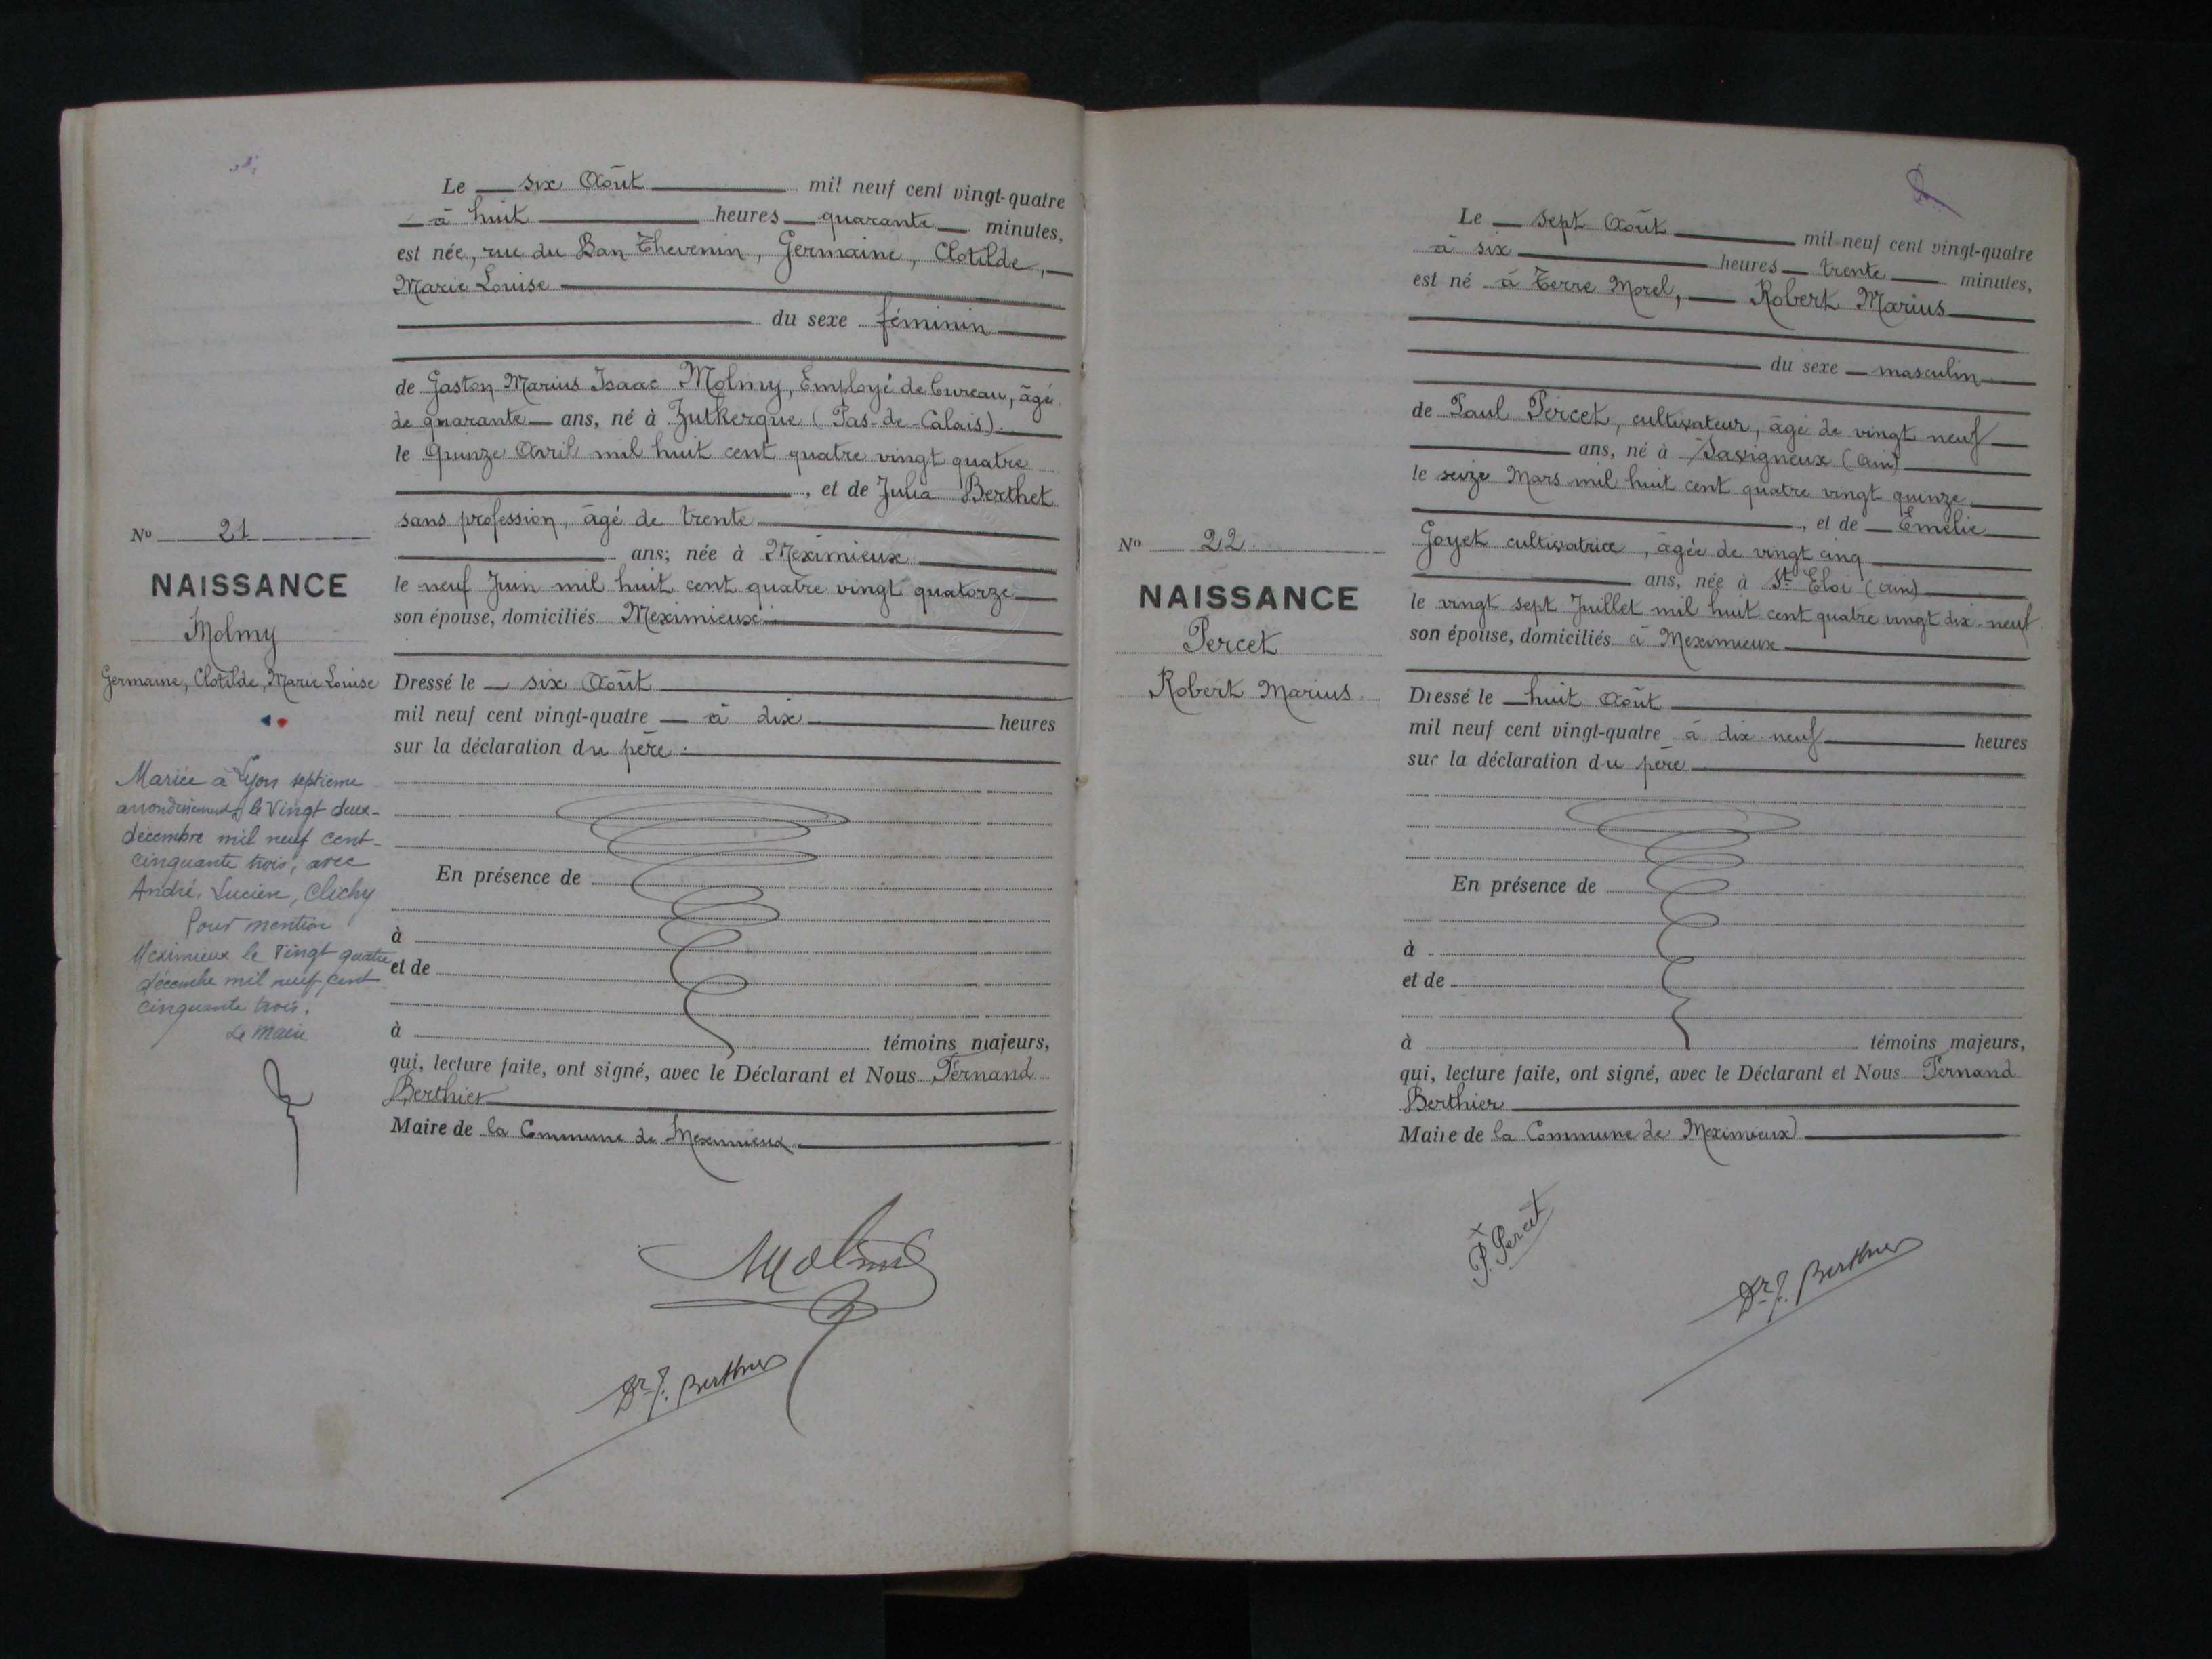 Le six Août mil neuf cent vingt-quatre
à huit heures quarante minutes,
est née, rue du Ban Thevenin, Germaine, Clotilde,
Marie Louise
du sexe féminin
de Gaston Marius Isaac Molmy, Employé de bureau, âgé
de quarante ans, né à Zutkerque (Pas-de-Calais)
le Quinze Avril mil huit cent quatre vingt quatre
, et de Julia Berthet
sans profession, âgé de trente
ans; née à Meximieux
le neuf Juin mil huit cent quatre vingt quatorze
son épouse, domiciliés Meximieux
Dressé le six Août
mil neuf cent vingt-quatre à dix heures
sur la déclaration du père.
En présence de
à
et de
à témoins majeurs,
qui, lecture faite, ont signé, avec le Déclarant et Nous Fernand
Berthier
Maire de la Commune de Meximieux
Molmy
Dr F. Berthier
No 21
NAISSANCE
Molmy
Germaine, Clotilde, Marie Louise
Mariée à Lyon septième
arrondissement, le Vingt deux
décembre mil neuf cent
cinquante trois, avec
André, Lucien, Clichy
Pour mention
Meximieux le Vingt quatre
décembre mil neuf cent
cinquante trois.
Le Maire
Le sept Août mil neuf cent vingt-quatre
à six heures trente minutes,
est né à Terre Morel, Robert Marius
du sexe masculin
de Paul Percet, cultivateur, âgé de vingt neuf
ans, né à Savigneux (Ain)
le seize Mars mil huit cent quatre vingt quinze
, et de Emélie
Goyet cultivatrice, âgée de vingt cinq
ans, née à St Eloi (Ain)
le vingt sept Juillet mil huit cent quatre vingt dix-neuf
son épouse, domiciliés à Meximieux
Dressé le huit Août
mil neuf cent vingt-quatre à dix neuf heures
sur la déclaration du père
En présence de
à
et de
à témoins majeurs,
qui, lecture faite, ont signé, avec le Déclarant et Nous Fernand
Berthier
Maire de la Commune de Meximieux
P. Percet
Dr F. Berthier
No 22
NAISSANCE
Percet
Robert Marius